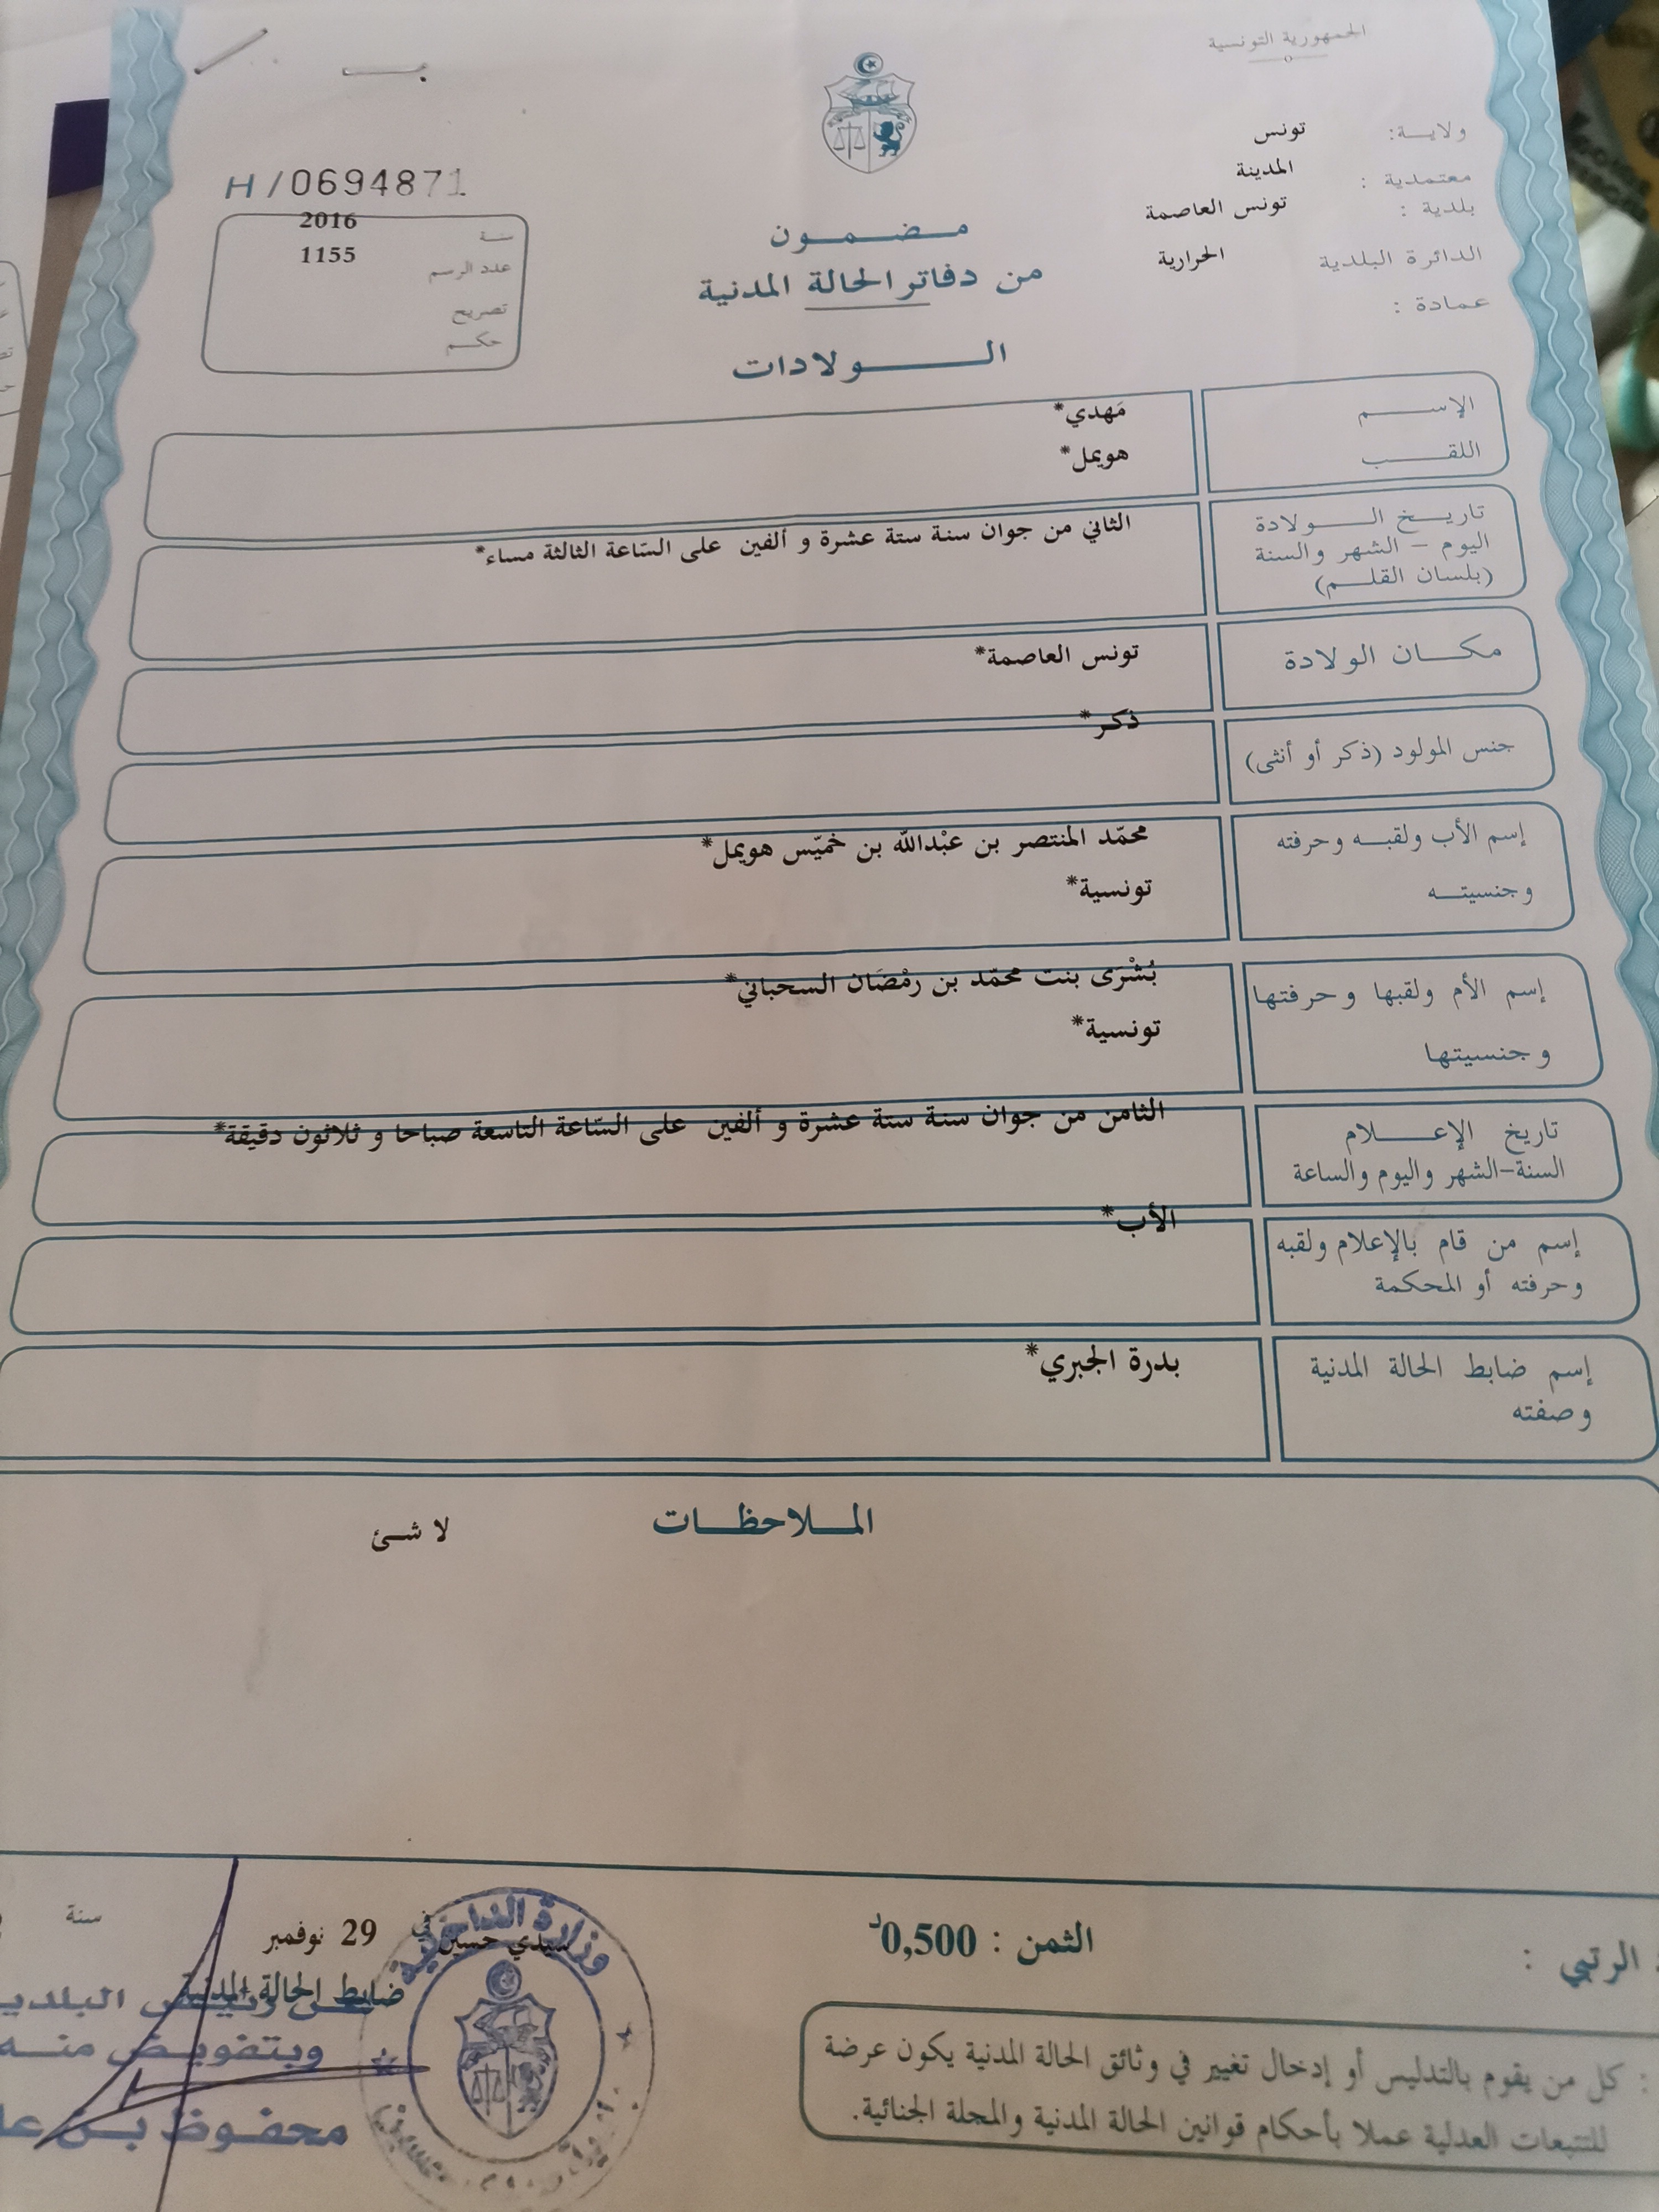 الجمهورية التونسية
ولاية: تونس
معتمدية : المدينة
بلدية : تونس العاصمة
الدائرة البلدية الحرارية
عمادة :
H/0694871
سنة 2016
عدد الرسم 1155
تصريح
حكم
مضمون
من دفاتر الحالة المدنية
الولادات
الإسم مَهدي*
اللقب هويمل*
تاريخ الولادة
اليوم - الشهر والسنة
(بلسان القلم)
الثاني من جوان سنة ستة عشرة و ألفين على السّاعة الثالثة مساء*
مكان الولادة تونس العاصمة*
جنس المولود (ذكر أو أنثى) ذكر*
إسم الأب ولقبه وحرفته محمّد المنتصر بن عبْدالله بن خميّس هويمل*
وجنسيته تونسية*
إسم الأم ولقبها وحرفتها بُشْرَى بنت محمّد بن رمْضَان السحباني*
وجنسيتها تونسية*
تاريخ الإعلام
السنة-الشهر واليوم والساعة
الثامن من جوان سنة ستة عشرة و ألفين على السّاعة التاسعة صباحا و ثلاثون دقيقة*
إسم من قام بالإعلام ولقبه
وحرفته أو المحكمة
الأب*
إسم ضابط الحالة المدنية
وصفته
بدرة الجبري*
الملاحظات
لا شئ
الرتبي :
الثمن : 0,500د
سيدي حسين في 29 نوفمبر سنة
ضابط الحالة المدنية
وزارة الداخلية
عن رئيس البلدي
وبتفويض منه
محفوظ بن
: كل من يقوم بالتدليس أو إدخال تغيير في وثائق الحالة المدنية يكون عرضة
للتتبعات العدلية عملا بأحكام قوانين الحالة المدنية والمجلة الجنائية.